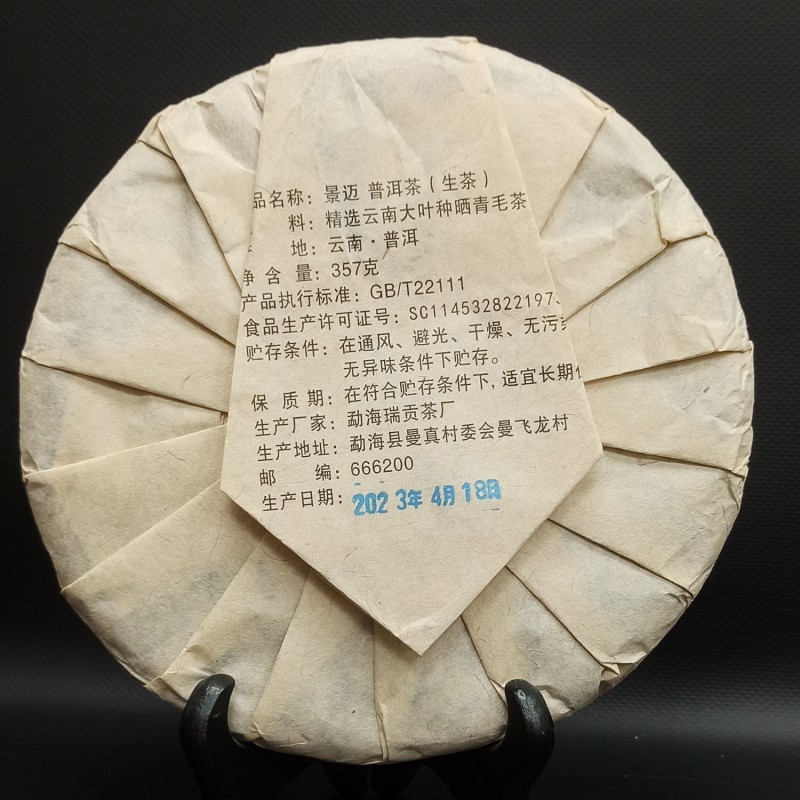 品名称：景迈 普洱茶（生茶）
料：精选云南大叶种晒青毛茶
地：云南·普洱
净 含 量：357克
产品执行标准：GB/T22111
食品生产许可证号：SC114532822197
贮存条件：在通风、避光、干燥、无污
无异味条件下贮存。
保 质 期：在符合贮存条件下，适宜长期
生产厂家：勐海瑞贡茶厂
生产地址：勐海县曼真村委会曼飞龙村
邮 编：666200
生产日期：2023年4月18日